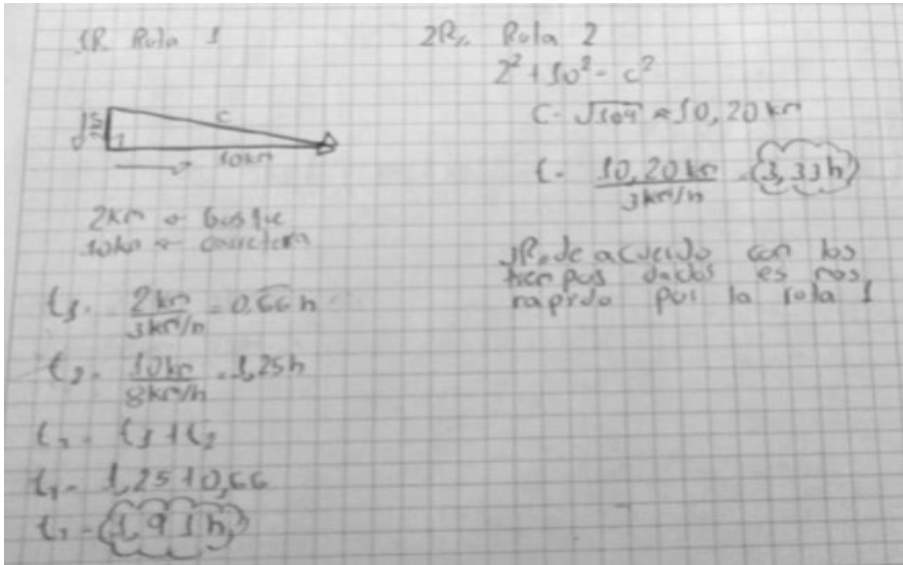 1R. Ruta 1
c
10km
2km → bosque
10km → carretera
t₁ = 2km / 3km/h = 0,66 h
t₂ = 10km / 8km/h = 1,25h
t₁ + t₂
1,25 + 0,66
1,91h
2R. Ruta 2
2² + 10² = c²
c = √104 ≈ 10,20 km
t = 10,20 km / 3km/h = 3,33h
3R. de acuerdo con los
tiempos dados es mas
rapido por la ruta 1